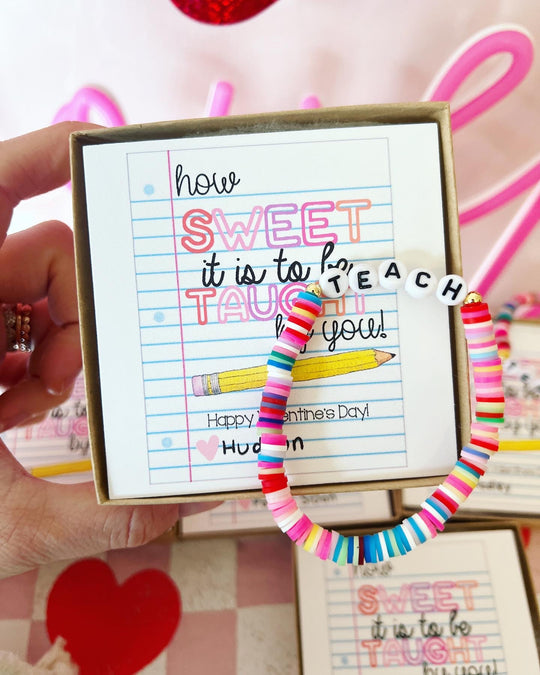 how
SWEET
it is to be
TAUGHT
by you!
TEACH
Happy Valentine's Day!
Hudson
SWEET
it is to be
TAUGHT
by you!